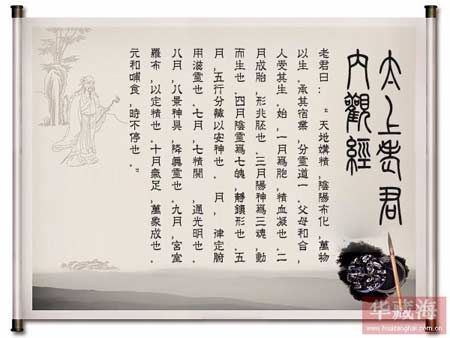 太上老君
內觀經
老君曰：“天地媾精，陰陽布化，萬物
以生．承其宿業，分靈道一．父母和合，
人受其生．始，一月爲胞，精血凝也．二
月成胎，形兆胚也．三月陽神爲三魂，動
而生也．四月陰靈爲七魄，靜鎮形也．五
月，五行分藏以安神也． 月，律定腑
用滋靈也．七月，七精開 ，通光明也．
八月，八景神具，降真靈也．九月，宮室
羅布，以定精也．十月氣足，萬象成也．
元和哺食，時不停也．”
华藏海
www.huazanghai.com.cn